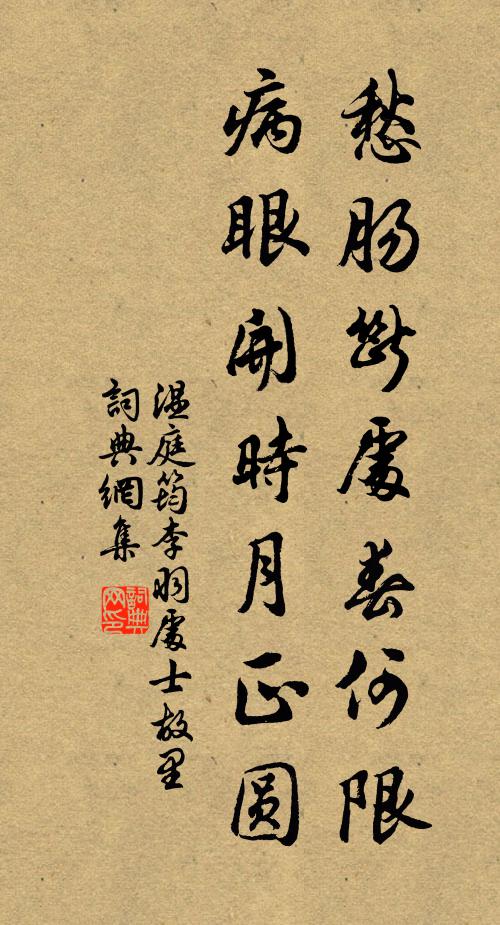 愁腸斷處春何限
病眼開時月正圓
溫庭筠李羽處士故里
詞典網集
詞典网印